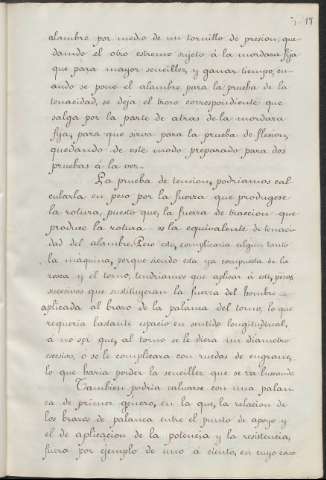 alambre por medio de un tornillo de presion, que-
dando el otro estremo sujeto á la mordaza fija
que para mayor sencillez y ganar tiempo, cu-
ando se pone el alambre para la prueba de la
tenacidad, se deja el trozo correspondiente que
salga por la parte de atras de la mordaza
fija, para que sirva para la prueba de flexion,
quedando de este modo preparado para dos
pruebas á la vez.
La prueba de tension, podriamos cal-
cularla en peso por la fuerza que produgese
la rotura, puesto que, la fuerza de traccion que
produce la rotura es la equivalente de tenaci-
dad del alambre. Pero esto, complicaria algun tanto
la máquina, porque siendo esta ya compuesta de la
rosca y el torno, tendriamos que aplicar á este, pesos
sucesivos que sustituyeran la fuerza del hombre
aplicada al brazo de la palanca del torno, lo que
requeria bastante espacio en sentido longitudinal,
á no ser que, al torno se le diera un diametro
escesivo, o se le complicara con ruedas de engrane,
lo que haria perder la sencillez que se va buscando
Tambien podria calcularse con una palan-
ca de primer género, en la que, la relacion de
los brazos de palanca entre el punto de apoyo y
el de aplicacion de la potencia y la resistencia,
fuera por ejemplo de uno á ciento, en cuyo caso